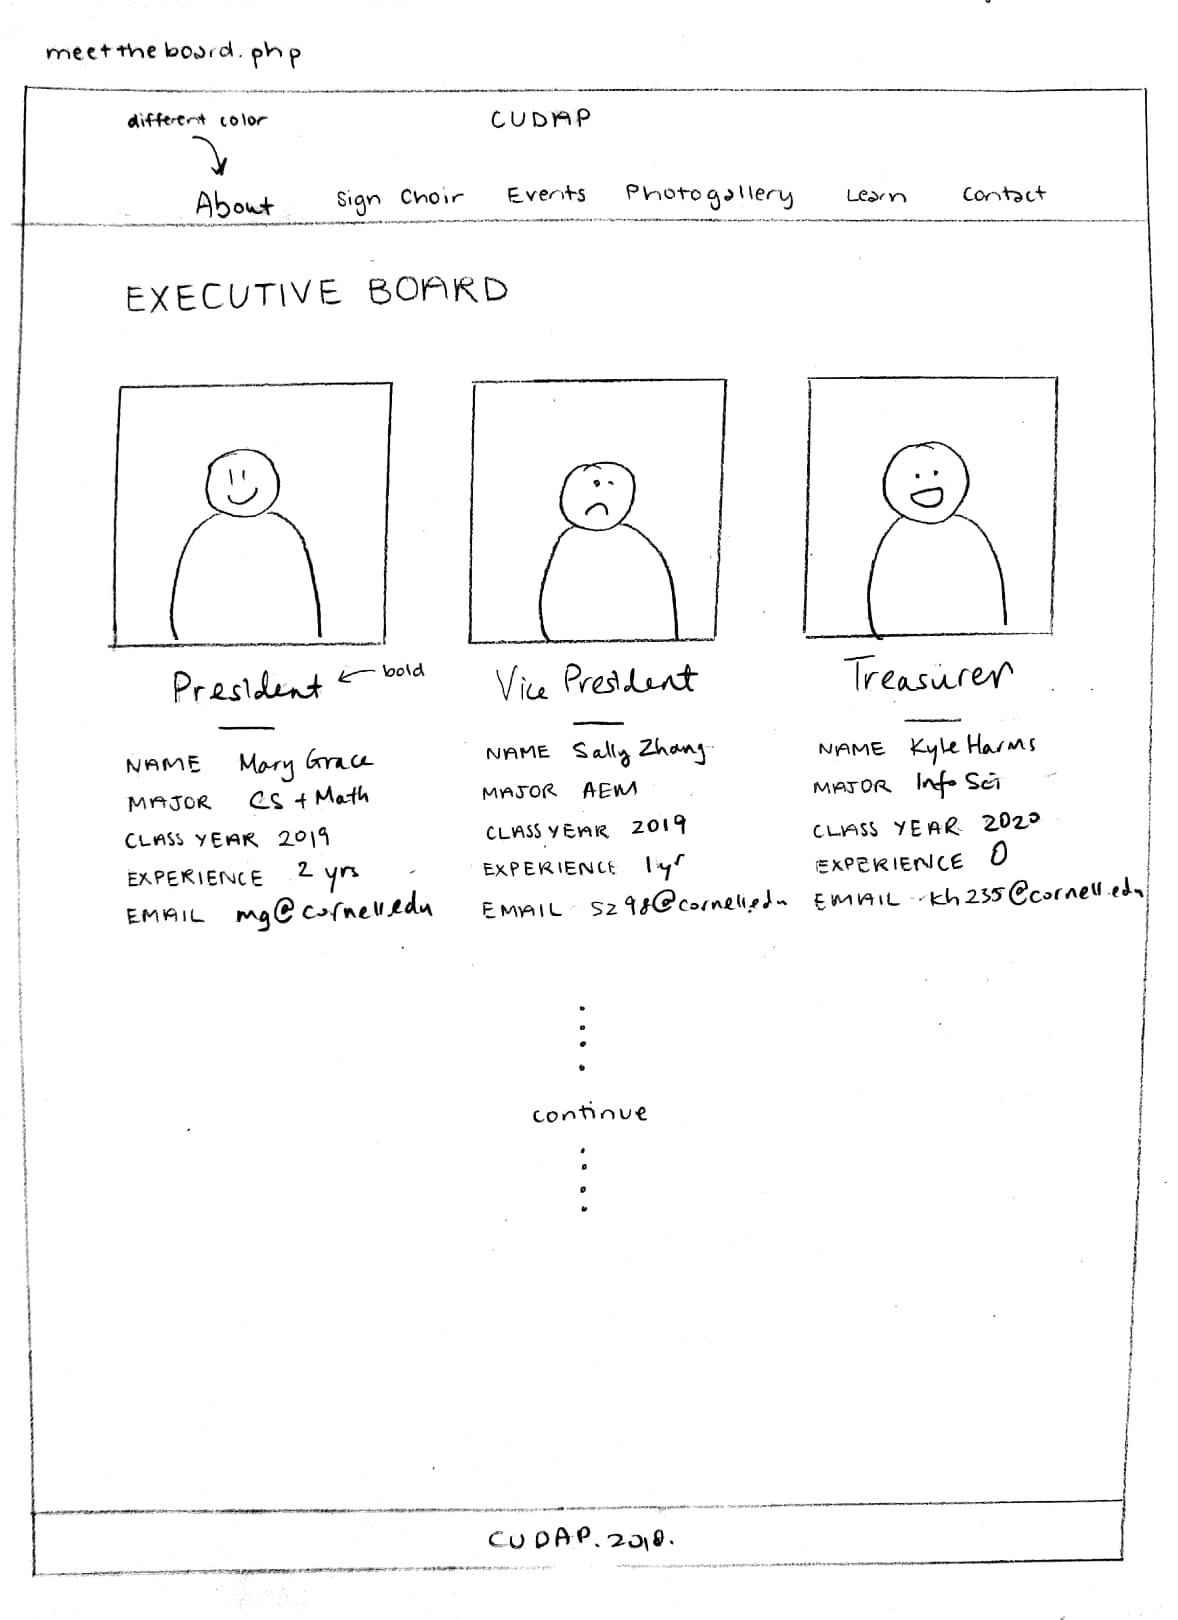 meettheboard.php
different color
CUDAP
About Sign Choir Events Photogallery Learn Contact
EXECUTIVE BOARD
President ← bold
Vice President
Treasurer
NAME Mary Grace
MAJOR CS + Math
CLASS YEAR 2019
EXPERIENCE 2 yrs
EMAIL mg@cornell.edu
NAME Sally Zhang
MAJOR AEM
CLASS YEAR 2019
EXPERIENCE 1yr
EMAIL sz98@cornell.edu
NAME Kyle Harms
MAJOR Info Sci
CLASS YEAR 2020
EXPERIENCE 0
EMAIL kh235@cornell.edu
continue
CUDAP. 2018.